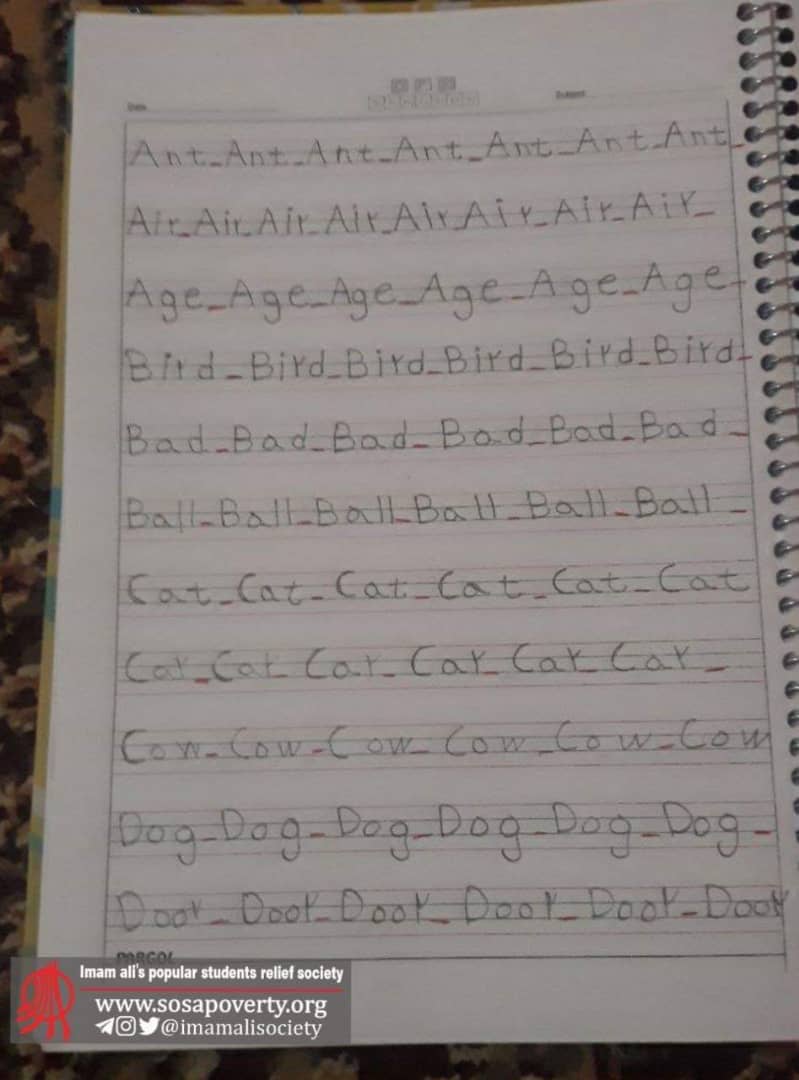 Date
Subject
Ant_Ant_Ant_Ant_Ant_Ant_Ant_
Air_Air_Air_Air_Air_Air_Air_Air_
Age_Age_Age_Age_Age_Age_
Bird_Bird_Bird_Bird_Bird_Bird_
Bad_Bad_Bad_Bad_Bad_Bad_
Ball_Ball_Ball_Ball_Ball_Ball_
Cat_Cat_Cat_Cat_Cat_Cat
Car_Car_Car_Car_Car_Car_
Cow_Cow_Cow_Cow_Cow_Cow
Dog_Dog_Dog_Dog_Dog_Dog_
Door_Door_Door_Door_Door_Door
PARGOL
Imam ali's popular students relief society
www.sosapoverty.org
@imamalisociety